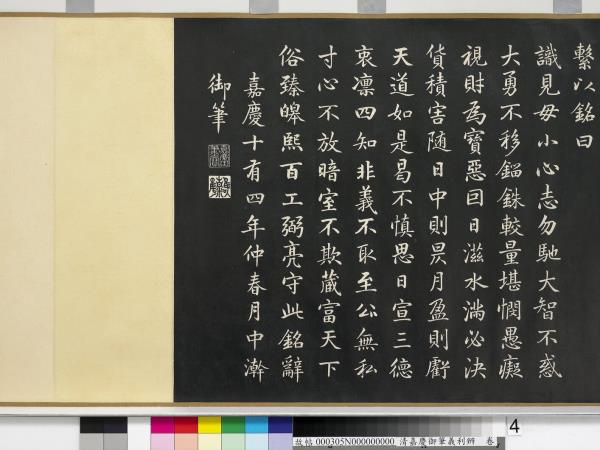 繫以銘曰
識見毋小心志勿馳大智不惑
大勇不移錙銖較量堪憫愚癡
視財為寶惡因日滋水滿必決
貨積害隨日中則昃月盈則虧
天道如是曷不慎思日宣三德
衷凜四知非義不取至公無私
寸心不放暗室不欺藏富天下
俗臻皞熙百工弼亮守此銘辭
嘉慶十有四年仲春月中澣
御筆
4
故帖 000305N000000000 清嘉慶御筆義利辨 卷